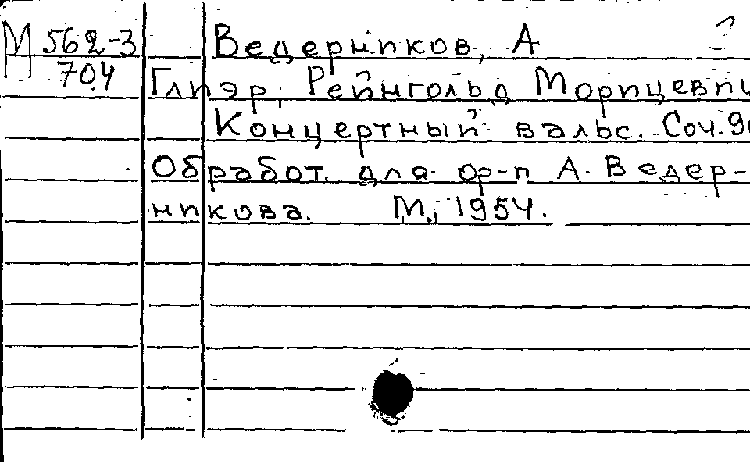 М 562-3 Ведерников, А
704 Глиэр, Рейнгольд Морицеви
Концертный вальс. Соч. 90
Обработ. для ф-п А. Ведер-
никова. М., 1954.